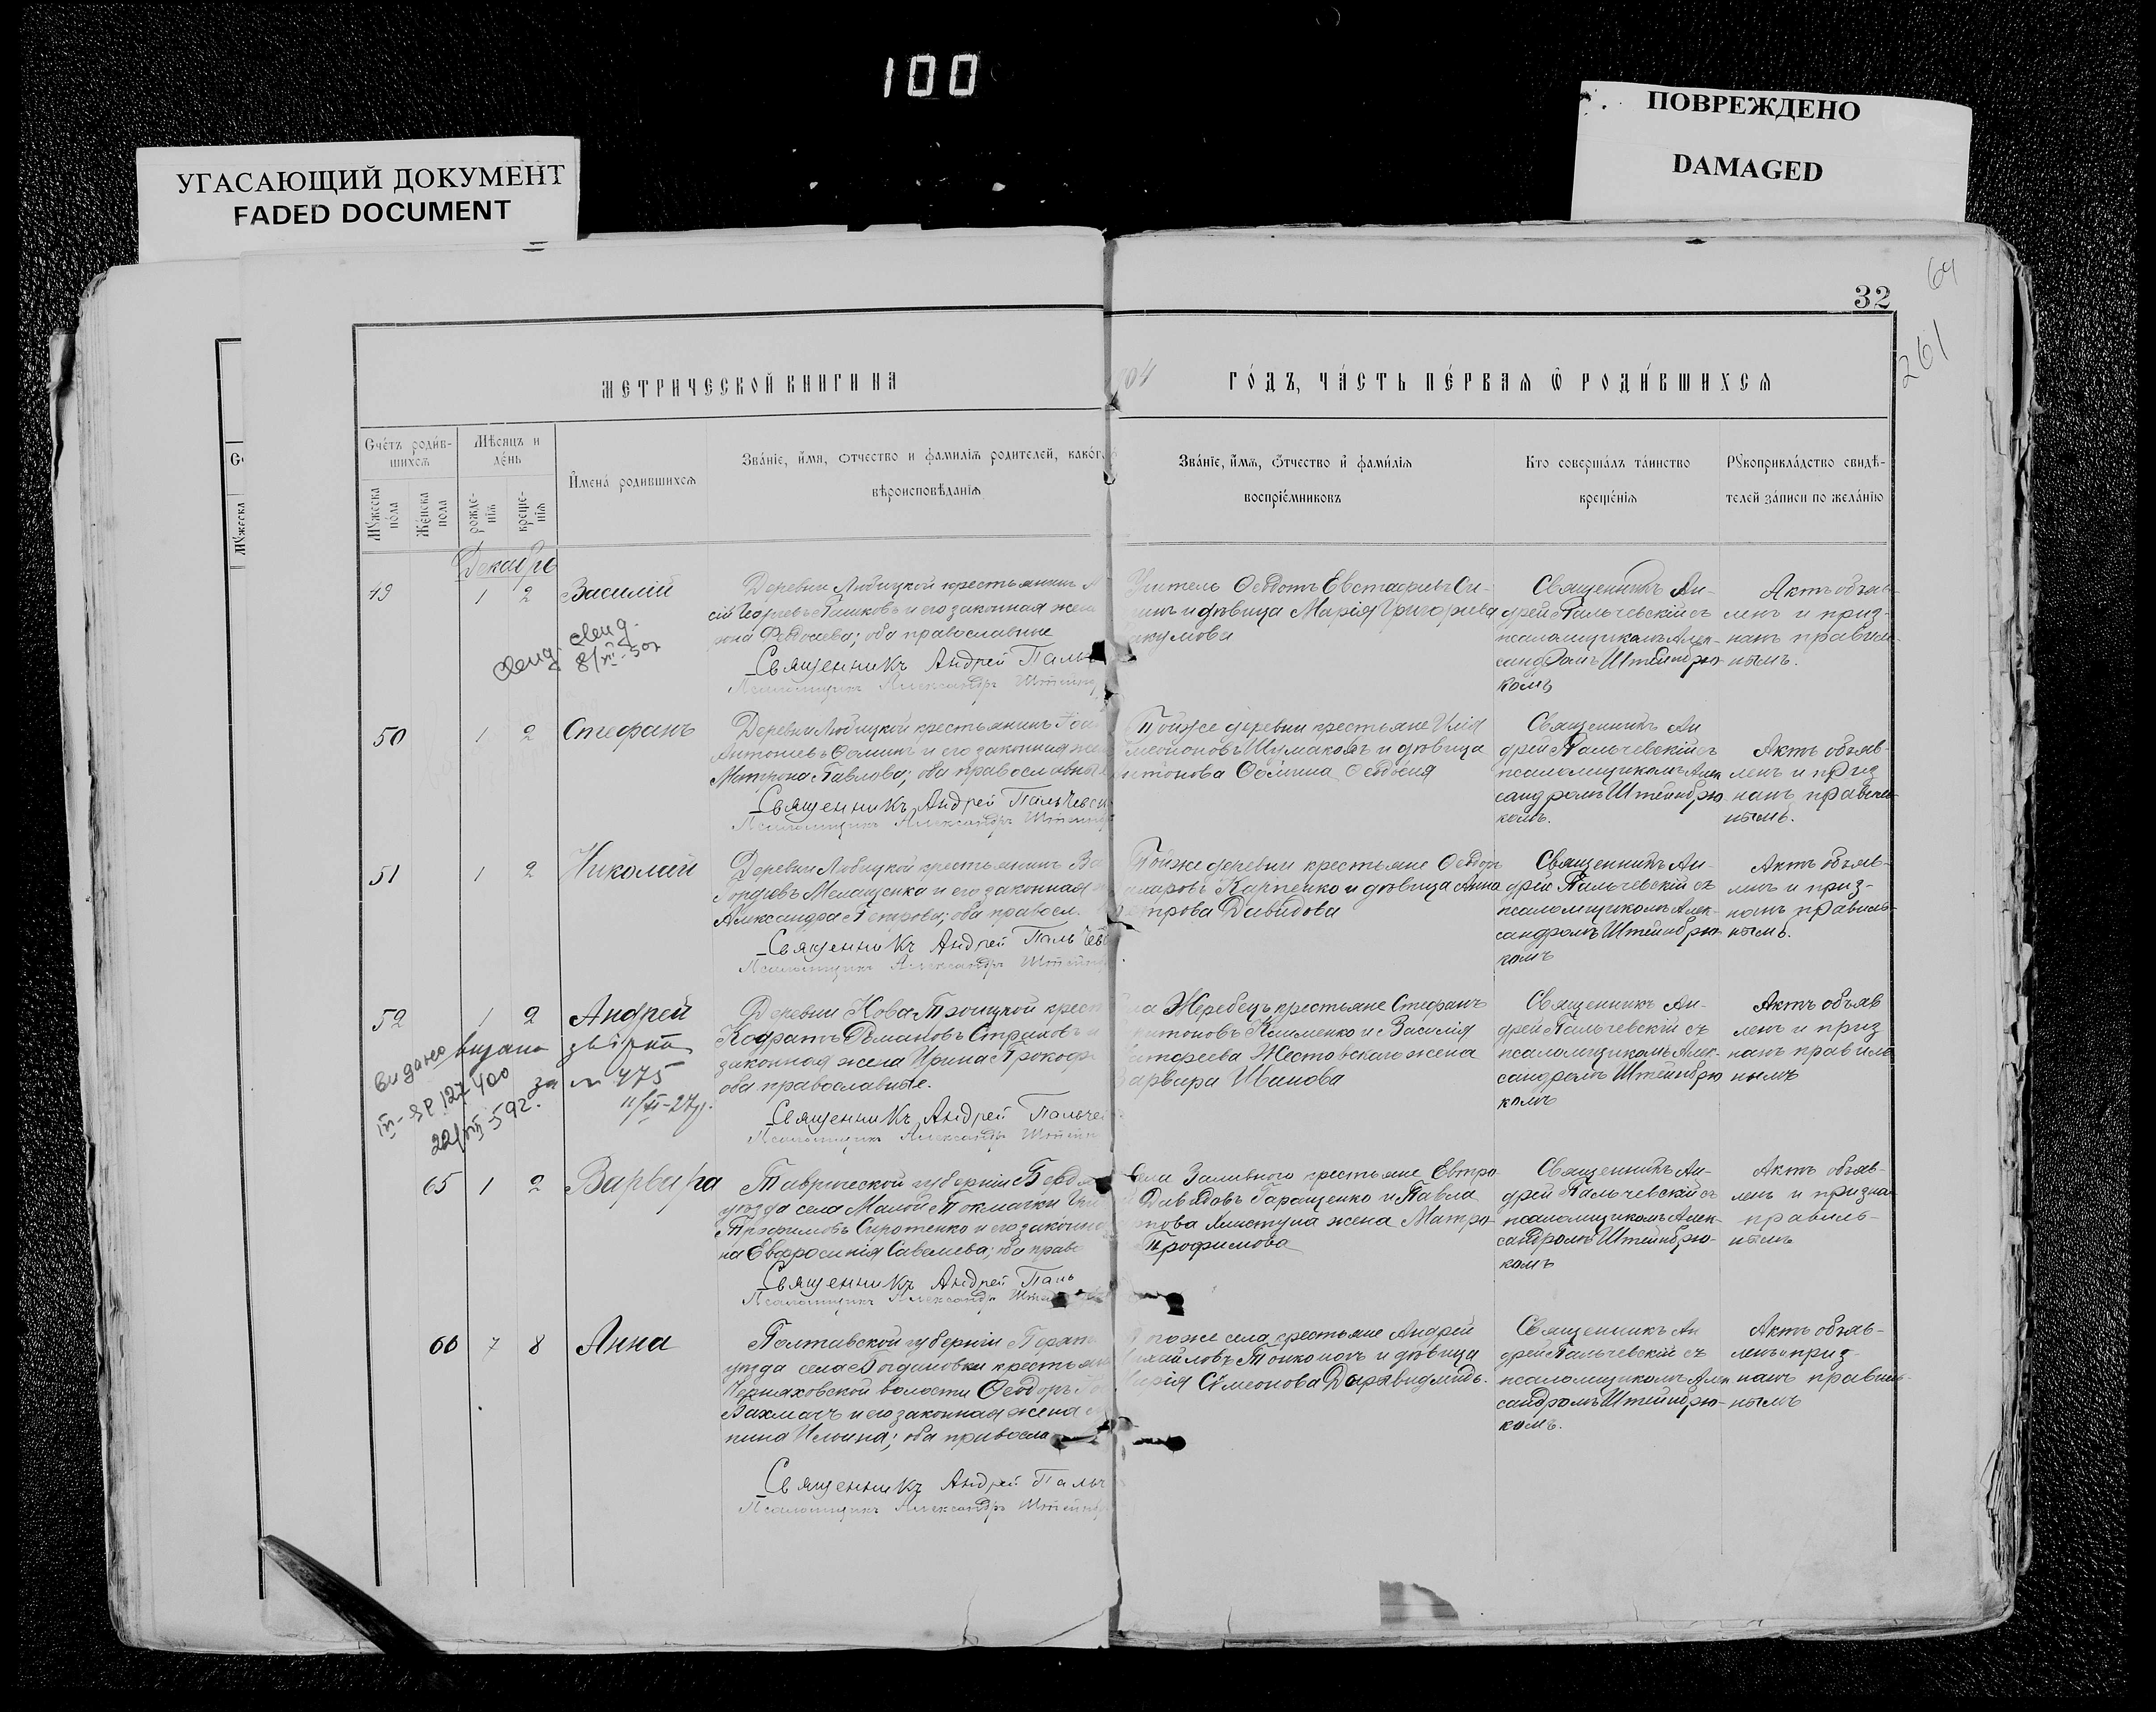 100
УГАСАЮЩИЙ ДОКУМЕНТ
FADED DOCUMENT
ПОВРЕЖДЕНО
DAMAGED
32
64
261
МЕТРИЧЕСКОЙ КНИГИ НА
04 ГО́ДЪ, ЧА́СТЬ ПЕ́РВАѦ Ѿ РОДИ́ВШИХСѦ
Счётъ роди́в-
шихсѧ
Мѣ́сѧцъ и
де́нь
Мꙋ́жеска по́ла
Же́нска пола
рожде-
нїѧ
креще-
нїѧ
И҆мена́ родившихсѧ
Зва́нїе, и҆́мѧ, ѻтчество и фамилїѧ родителей, како́г
вѣроисповѣ́данїѧ
Зва́нїе, и҆́мѧ, ѻ҆́тчество и҆ фами́лїѧ
воспрїе́мниковъ
Кто соверша́лъ та́инство
креще́нїѧ
Рꙋкоприкла́дство свидѣ́-
телей за́писи по жела́нїю
Мꙋжеска
Декабрь
49 1 2 Василій
Деревни Любицкой крестьянинъ
сій Георгіевъ Пашковъ и его законная жен
рона Ѳедосіева; оба православные
Священникъ Андрей Паль
Псаломщикъ Александръ Штейнб
Учитель Ѳеодотъ Евстафіевъ Си-
нинъ и дѣвица Марія Григорьева
акумова
Священникъ Ан-
дрей Пальчевскій съ
псаломщикомъ Алек-
сандромъ Штейнбрю-
комъ
Актъ объяв-
ленъ и приз-
нанъ правиль-
нымъ.
50 1 2 Стефанъ
Деревни Любицкой крестьянинъ
Антоніевъ Ѳоминъ и его законная жен
Матрона Павлова; оба православные
Священникъ Андрей Пальчевск
Псаломщикъ Александръ Штейнбр
Тойже деревни крестьяне Илія
Сѵмеоновъ Шумаковъ и дѣвица
нтонова Ѳомина Ѳеодосія
Священникъ Ан
дрей Пальчевскій съ
псаломщикомъ Алек
сандромъ Штейнбрю
комъ.
Актъ объяв-
ленъ и приз
нанъ правиль-
нымъ.
51 1 2 Николай
Деревни Любицкой крестьянинъ Ва
Гордіевъ Мелащенко и его законная
Александра Петрова; оба правосл.
Священникъ Андрей Пальчев
Псаломщикъ Александръ Штейнб
Тойже деревни крестьяне Ѳеодоръ
Карпенко и дѣвица Анна
етрова Давидова
Священникъ Ан-
дрей Пальчевскій съ
псаломщикомъ Алек-
сандромъ Штейнбрю-
комъ
Актъ объяв-
ленъ и приз-
нанъ правиль-
нымъ.
52 1 2 Андрей
Деревни Ново Троицкой крест
Кодратъ Романовъ Страховъ и
законная жена Ирина Прокоф
оба православные.
Священникъ Андрей Пальче
Псаломщикъ Александръ Штейн
ла Жеребецъ крестьяне Стефанъ
нтоновъ Клименко и Василія
атѳеева Жестовскаго жена
арвара Иванова
Священникъ Ан-
дрей Пальчевскій съ
псаломщикомъ Алек-
сандромъ Штейнбрю
комъ
Актъ объяв
ленъ и приз
нанъ правиль
нымъ
видано
за № 475
65 1 2 Варвара
Таврической губерніи Бердя
уѣзда села Малой Токмачки
Трофимовъ Сиротенко и его законна
на Евфросинія Савельева; оба право
Священникъ Андрей Паль
Псаломщикъ Александръ Штей
села Заливного крестьяне Евтро-
Давидовъ Гаращенко и Павла
пова Хлистуна жена Матро-
Трофимова
Священникъ Ан-
дрей Пальчевскій съ
псаломщикомъ Алек-
сандромъ Штейнбрю-
комъ
Актъ объяв-
ленъ и призна
правиль-
нымъ
66 7 8 Анна
Полтавской губерніи
уѣзда села Богдановки крестьян
Черняховской волости Ѳеодоръ
Вахмачъ и его законная жена
пина Ильина; оба правосла
Священникъ Андрей Пальч
Псаломщикъ Александръ Штейнбр
Тогоже села крестьяне Андрей
ихайловъ Тонконогъ и дѣвица
арія Сѵмеонова
Священникъ Ан
дрей Пальчевскій съ
псаломщикомъ Алек
сандромъ Штейнбрю-
комъ.
Актъ объяв-
ленъ и приз-
нанъ правиль-
нымъ